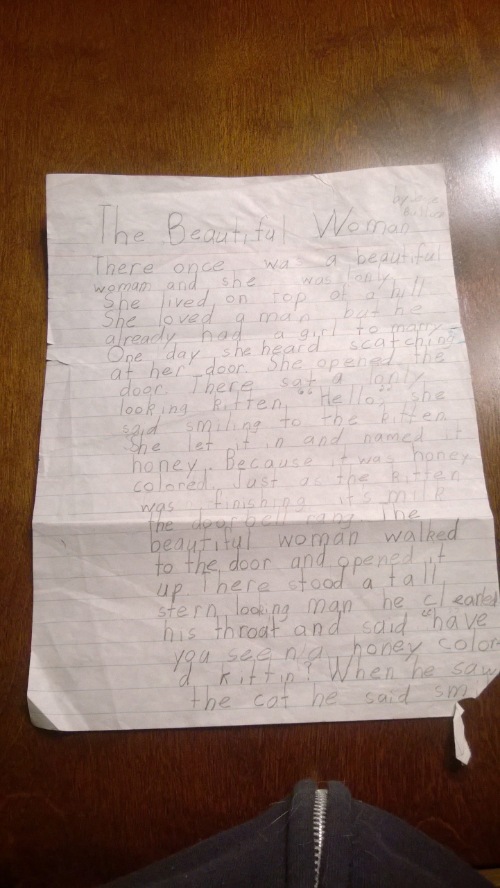 by
The Beautiful Woman
There once was a beautiful
woman and she was lonly.
She lived on top of a hill
She loved a man but he
already had a girl to marry.
One day she heard scatching
at her door. She opened the
door. There sat a lonly
looking kitten. "Hello" she
said smiling to the kitten.
She let it in and named it
honey. Because it was honey
colored. Just as the kitten
was finishing it's milk
the doorbell rang. The
beautiful woman walked
to the door and opened it
up. There stood a tall,
stern looking man he cleared
his throat and said "have
you seen a honey color-
d kittin? When he saw
the cat he said smil